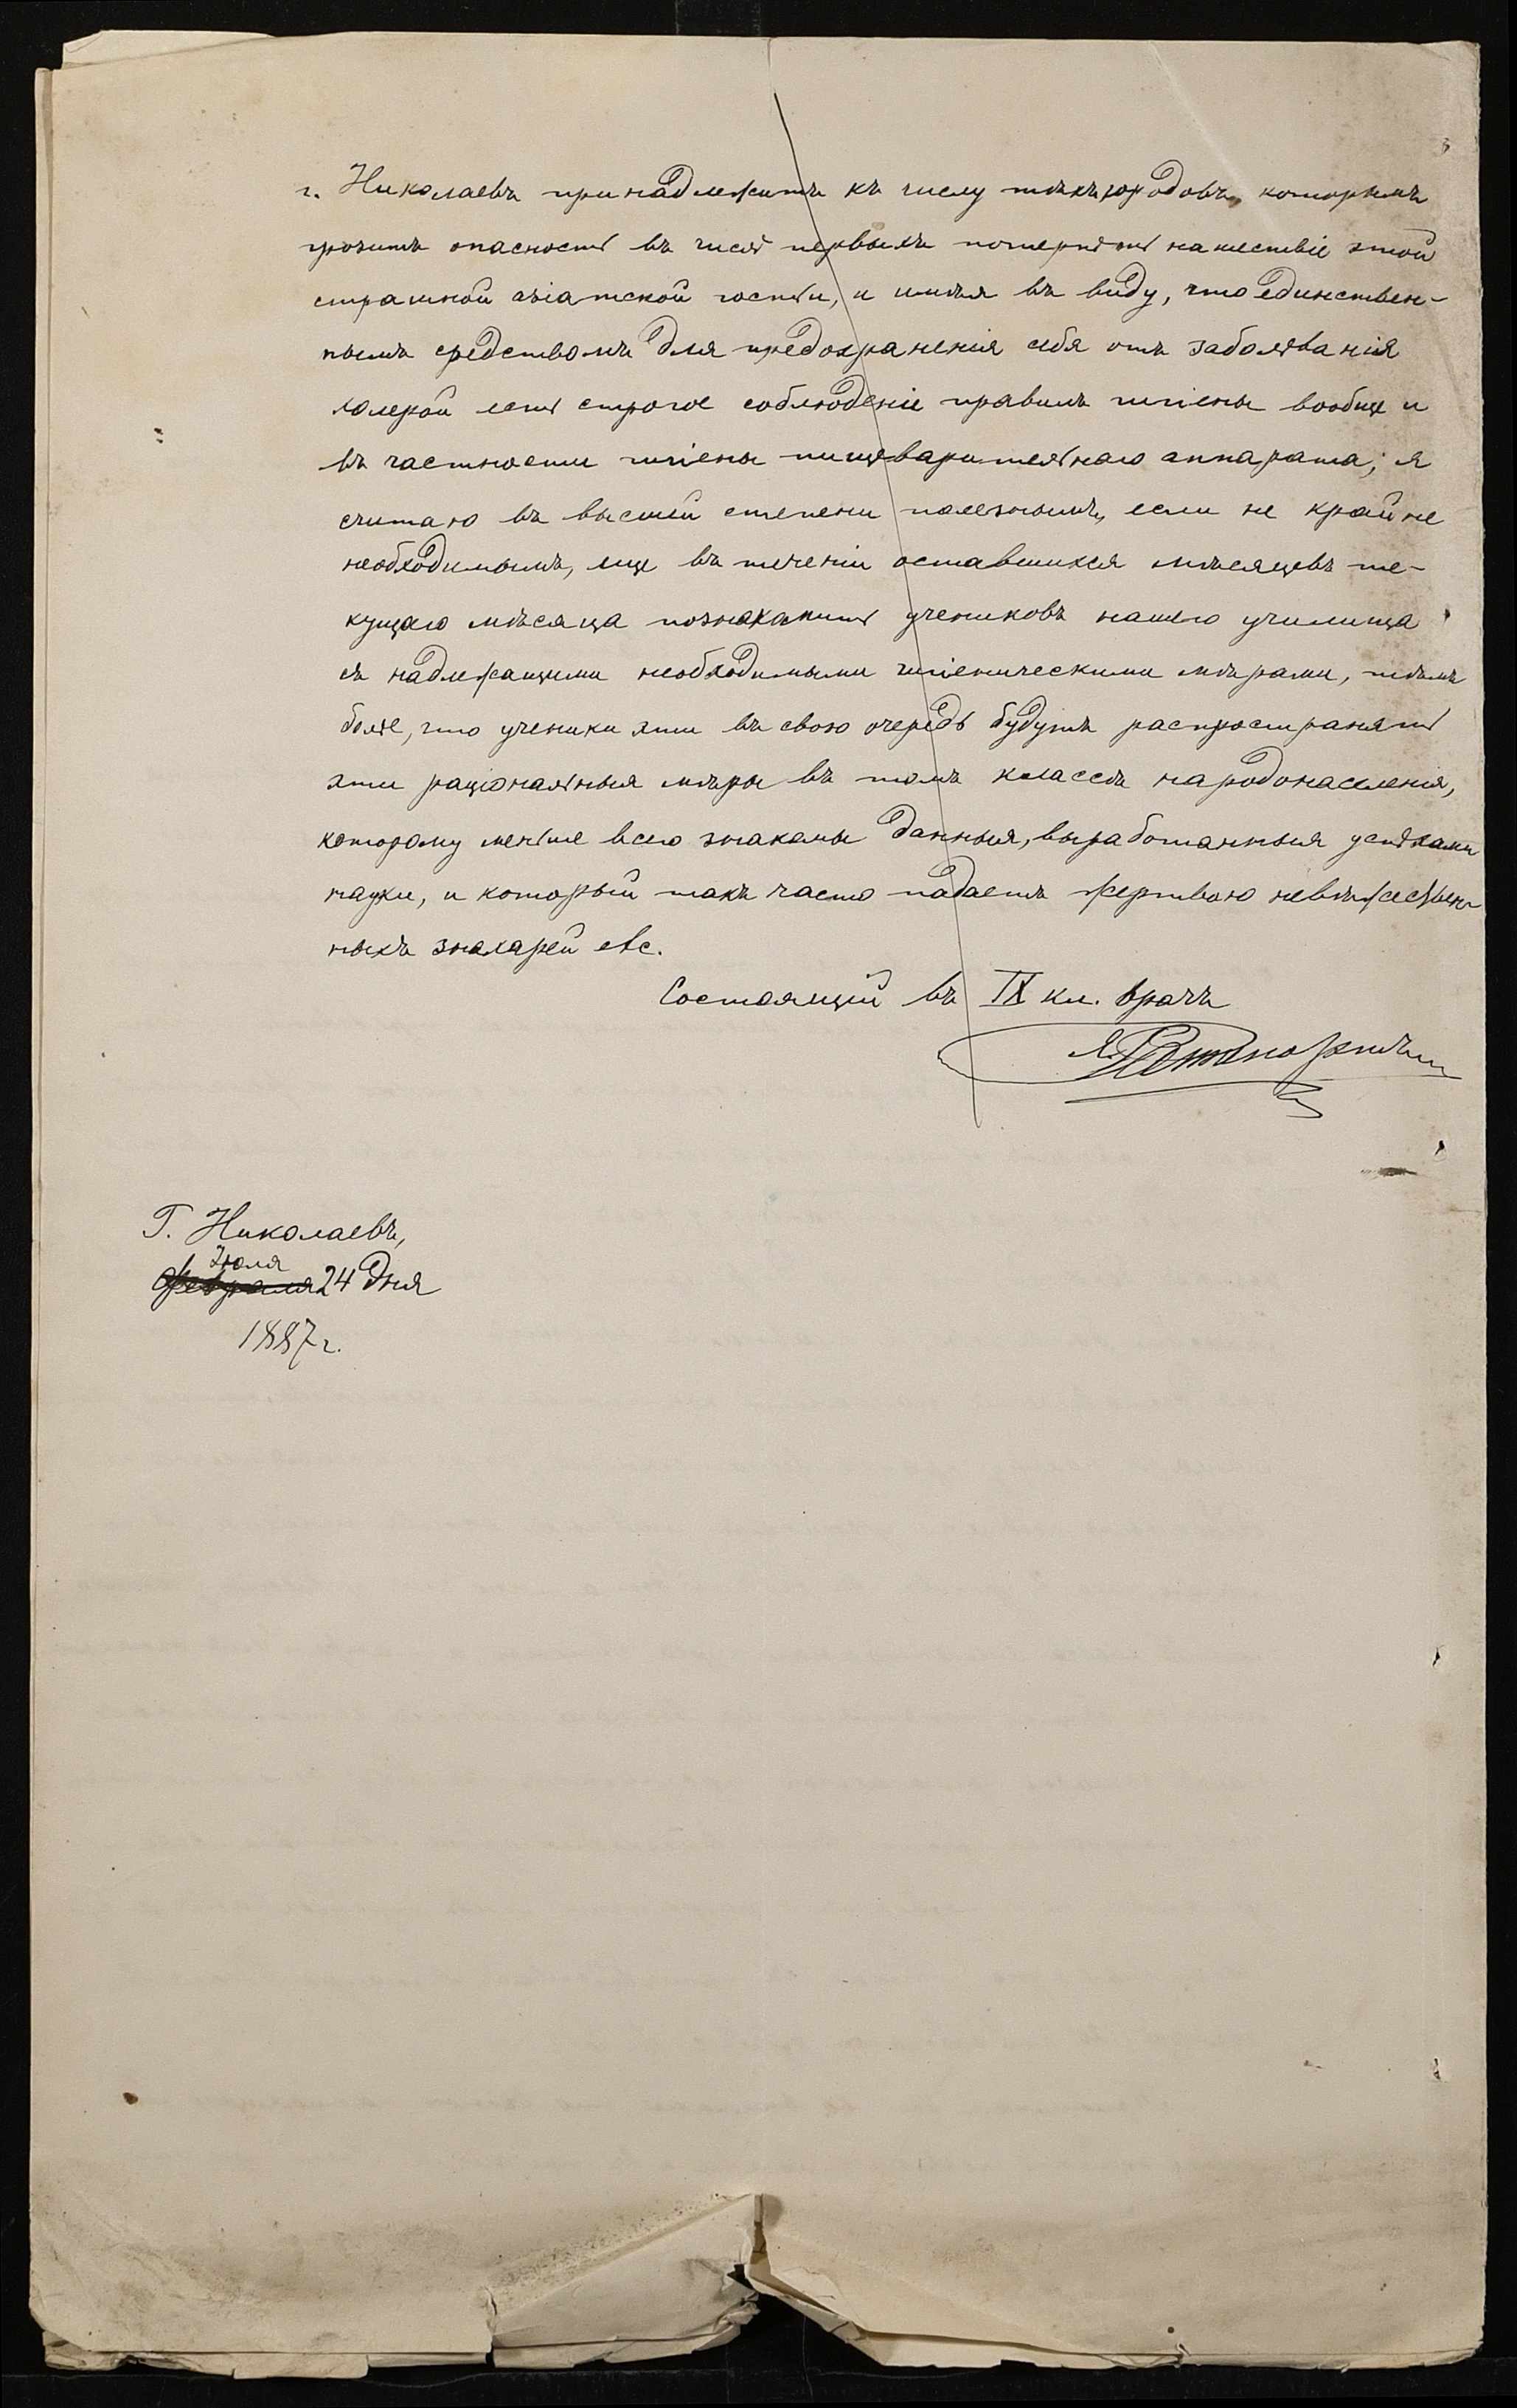 г. Николаевъ принадлежитъ къ числу тѣхъ городовъ, которымъ
грозитъ опасность въ числѣ первыхъ потерпѣть нашествіе этой
страшной азіатской гостьи, и имѣя въ виду, что единствен-
нымъ средствомъ для предохраненія себя отъ заболѣванія
холерой есть строгое соблюденіе правилъ гигіены вообще и
въ частности гигіены пищеварительнаго аппарата; я
считаю въ высшей степени полезнымъ, если не крайне
необходимымъ, еще въ теченіи оставшихся мѣсяцевъ те-
кущаго мѣсяца познакомить учениковъ нашего училища
съ надлежащими необходимыми гигіеническими мѣрами, тѣмъ
болѣе, что ученики эти въ свою очередь будутъ распространять
эти раціональныя мѣры въ томъ классѣ народонаселенія,
которому меньше всего знакомы данныя, выработанныя успѣхами
науки, и который такъ часто падаетъ жертвою невѣжествен-
ныхъ знахарей etc.
Состоящій въ IX кл. врачъ
Г. Николаевъ,
Іюля
Февраля 24 дня
1887 г.